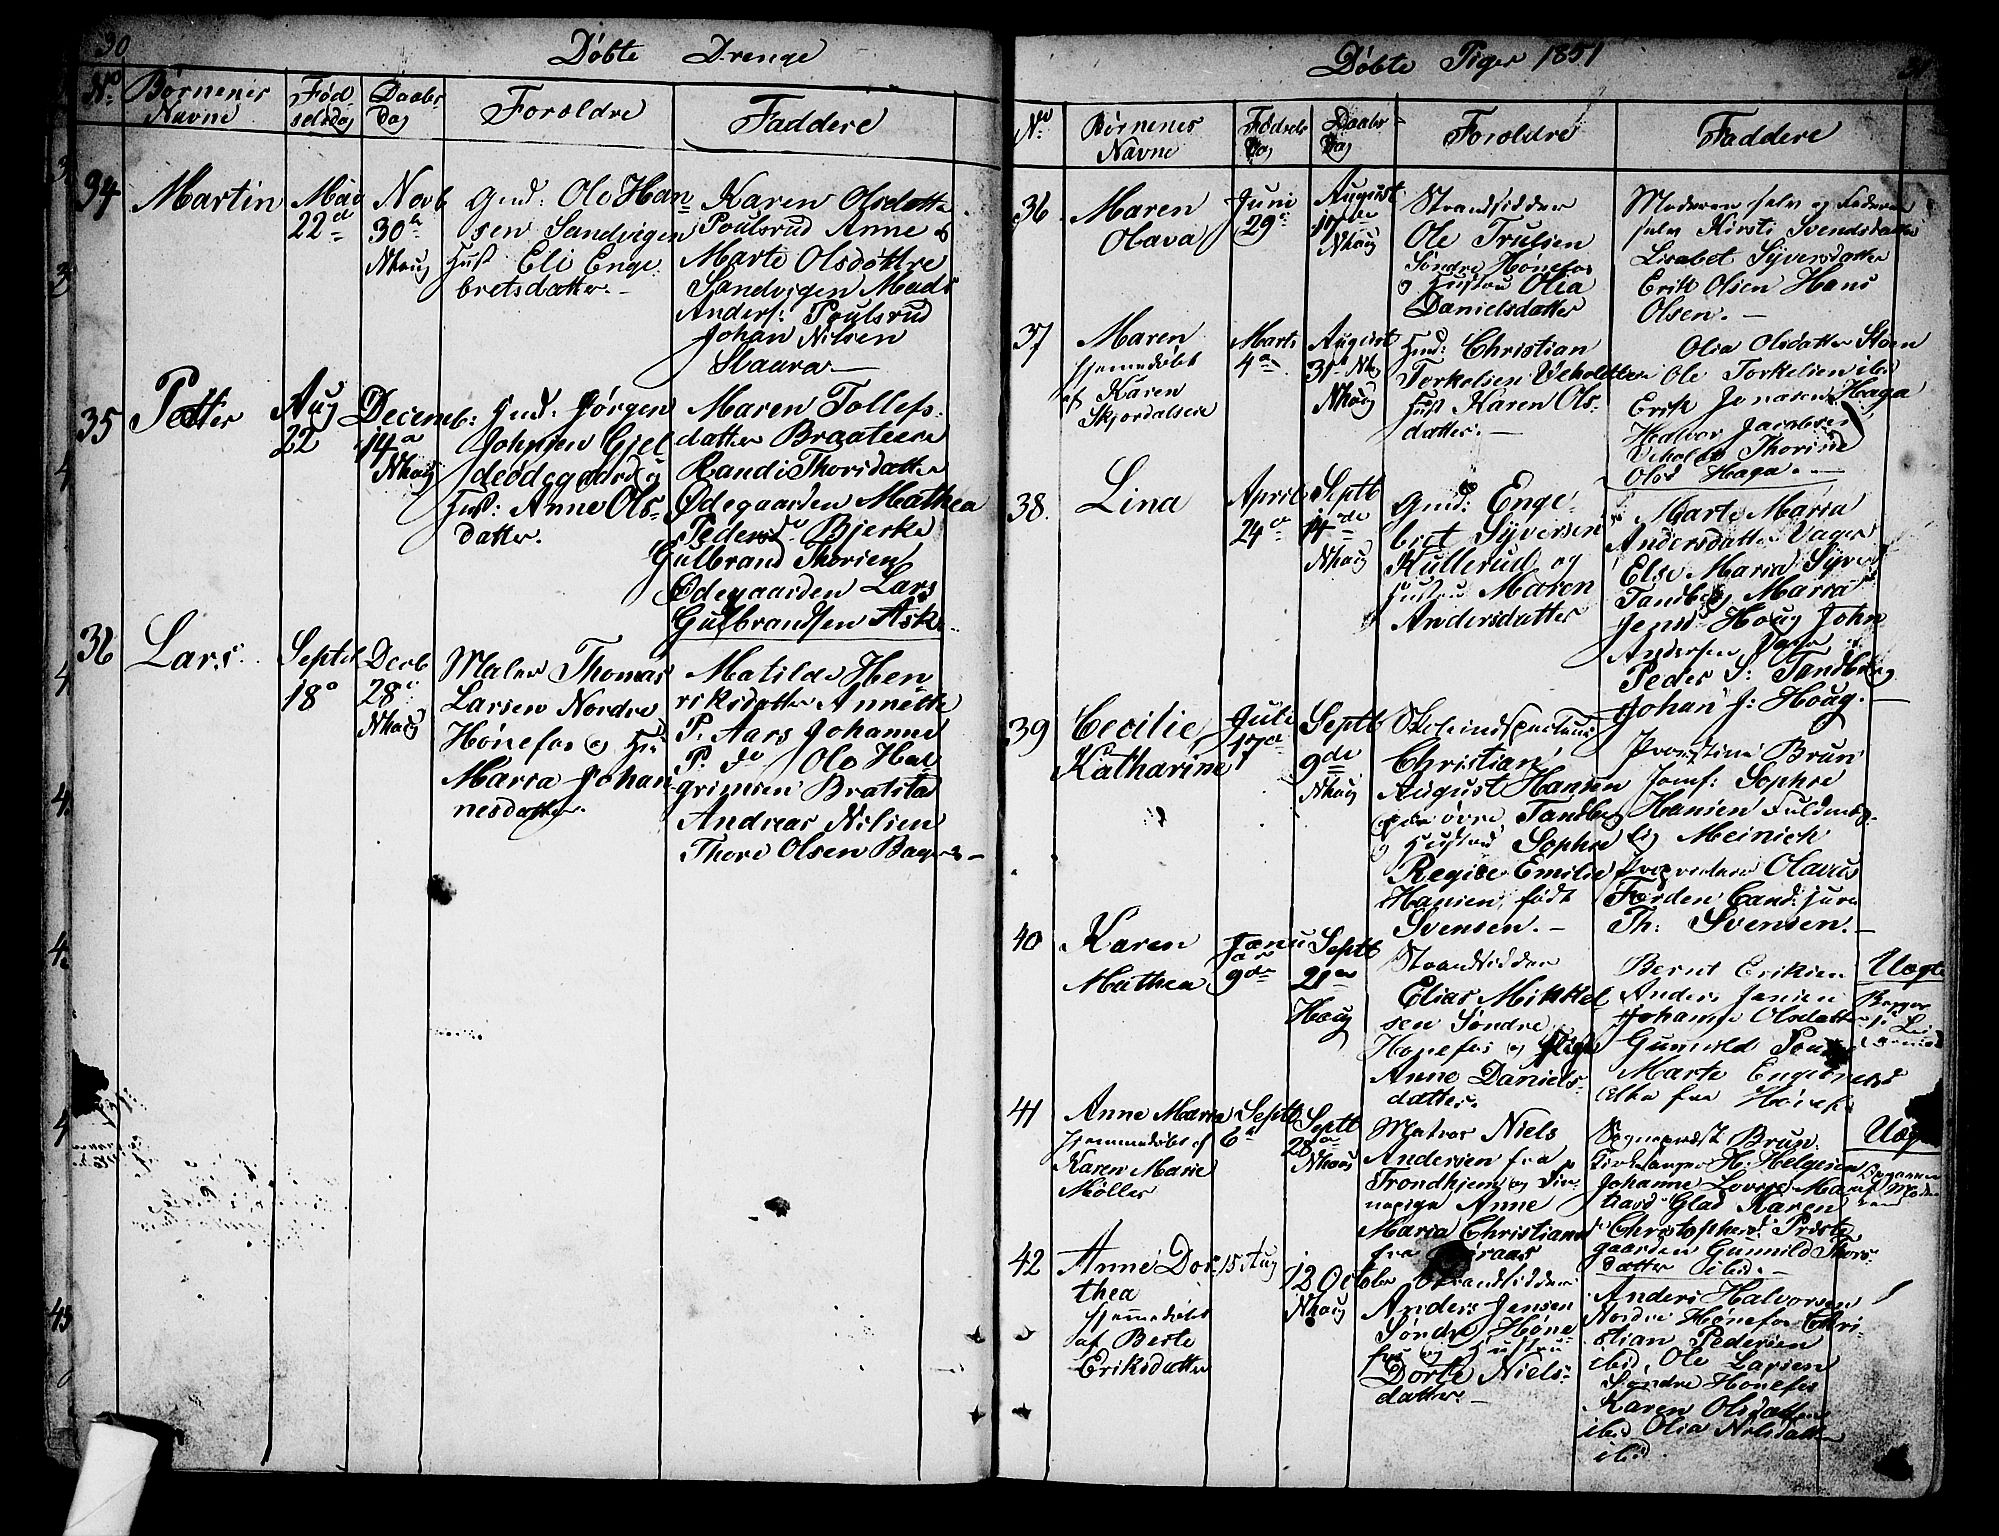 30
Døbte Drenge
No
Børnenes Navne
Fødselsdag
Daabsdag
Foroldre
Faddere
34
Martin
Mai
22d
Novb
30te
Nhoug
Gmd: Ole Han
sen Sandvigen
Hust Eli Enge
bretsdatter.
Karen Olsdatter
Poulsrud Anne &
Marte Olsdøttre
Sandvigen Mads
Anders: Poulsrud
Johan Nilsen
Haura
35
Petter
Aug
22
Decemb:
14de
Nhoug
Gmd. Jørgen
Johnsen Gjel
deødegaard og
Hust: Anne Ols-
datter.
Maren Tollefs
datter Braateren
Randi Thorsdatter
Ødegaarden Mathea
Pedersd. Bjerke
Gulbrand Thorsen
Ødegaarden Lars
Gulbrandsen Ask.
36
Lars
Septb
18d
Decb
28d
Nhoug
Maler Thomas
Larsen Nordre
Hønefos og Hu
Maria Johan
nesdatter.
Matilde Hen
riksdatter Annette
P. Aars Johanne
P. do Ole Hal
grimsen Bratsta
Andreas Nilsen
Thore Olsen Bager
31
Døbte Piger 1851
No
Børnenes Navne
Fødsels Dag
Daabs Dag
Foroldre
Faddere
36
Maren
Olava
Juni
29d
August
17de
Nhoug
Strandsidder
Ole Trulsen
Søndre Hønefos
og Hustru Olea
Danielsdatter
Moderen selv og Faderen
selv Kirsti Svendsdatter
Lisabet Syversdatter
Erik Olsen Hans
Olsen.
37
Maren
hjemmedøbt
af Karen
Skjordalsen
Marts
4de
August
31te
Nhoug
Gmd: Christian
Torkelsen Veholt
Hust Karen Ols-
datter.
Olia Olsdatter Steen
Ole Torkelsen ibd
Erik Jonasen Haga
Halvor Jacobsen
Veholt Thorine
Olsd Haga.
38
Lina
April
24de
Septb
14de
Nhoug
Gmd: Enge
bret Syversen
Kullerud og
Hustru Maren
Andersdatter
Marte Maria
Andersdatter Vager
Else Maria Syver
Tandberg Maria
Jensd Houg John
Andersen Vager
Peder S: Tandberg
Johan J: Houg.
39
Cecilie
Katharine
Juli
17de
Septb
9de
Nhoug
Skoleinspecteur
Christian
August Hansen
øvre Tandberg
og Hustru Sophie
Regise Emilie
Hansen, født
Svensen.
Provstinde Brun
Jomf: Sophie
Hansen Fuldmæg
tig Meinich
Proprietær Olavus
Forden Cand: jura
Th: Svensen.
40
Karen
Mathea
Janu
ar
9de
Septb
21de
Houg
Strandsidder
Elias Mikkel
sen Søndre
Hønefos og Pige
Anne Daniels-
datter.
Bernt Eriksen
Anders Jensen
Johanne Olsdatter
Gunnild
Marte Engebretsd
alle fra Hønefos
Uægte
41
Anne Maria
hjemmedøbt af
Karen Marie
Møller
Septb
6te
Septb
28de
Nhoug
Matros Niels
Andersen fra
Trondhjem og Pi-
Anne
Maria Christians
fra Røraas
Sognepræst Brun
Kirkesanger H: Helgesen
Johanne Lovise Ma
tiasd Glad Karen
Christophersd Præste
gaarden Gunnild Thors
datter ibid.
Uægte
42
Anne Dor-
thea
hjemmedøbt
af Berte
Eriksdatter
15 Aug
12 October
Nhoug
Strandsidder
Anders Jensen
Søndre Høne
fos og Hustru
Dorte Niels-
datter.
Anders Halvorsen
Nordre Hønefos Chri-
stian Pedersen
ibid. Ole Larsen
Søndre Hønefos
Karen Olsdatter
ibid Olia Nilsdatter
ibid.